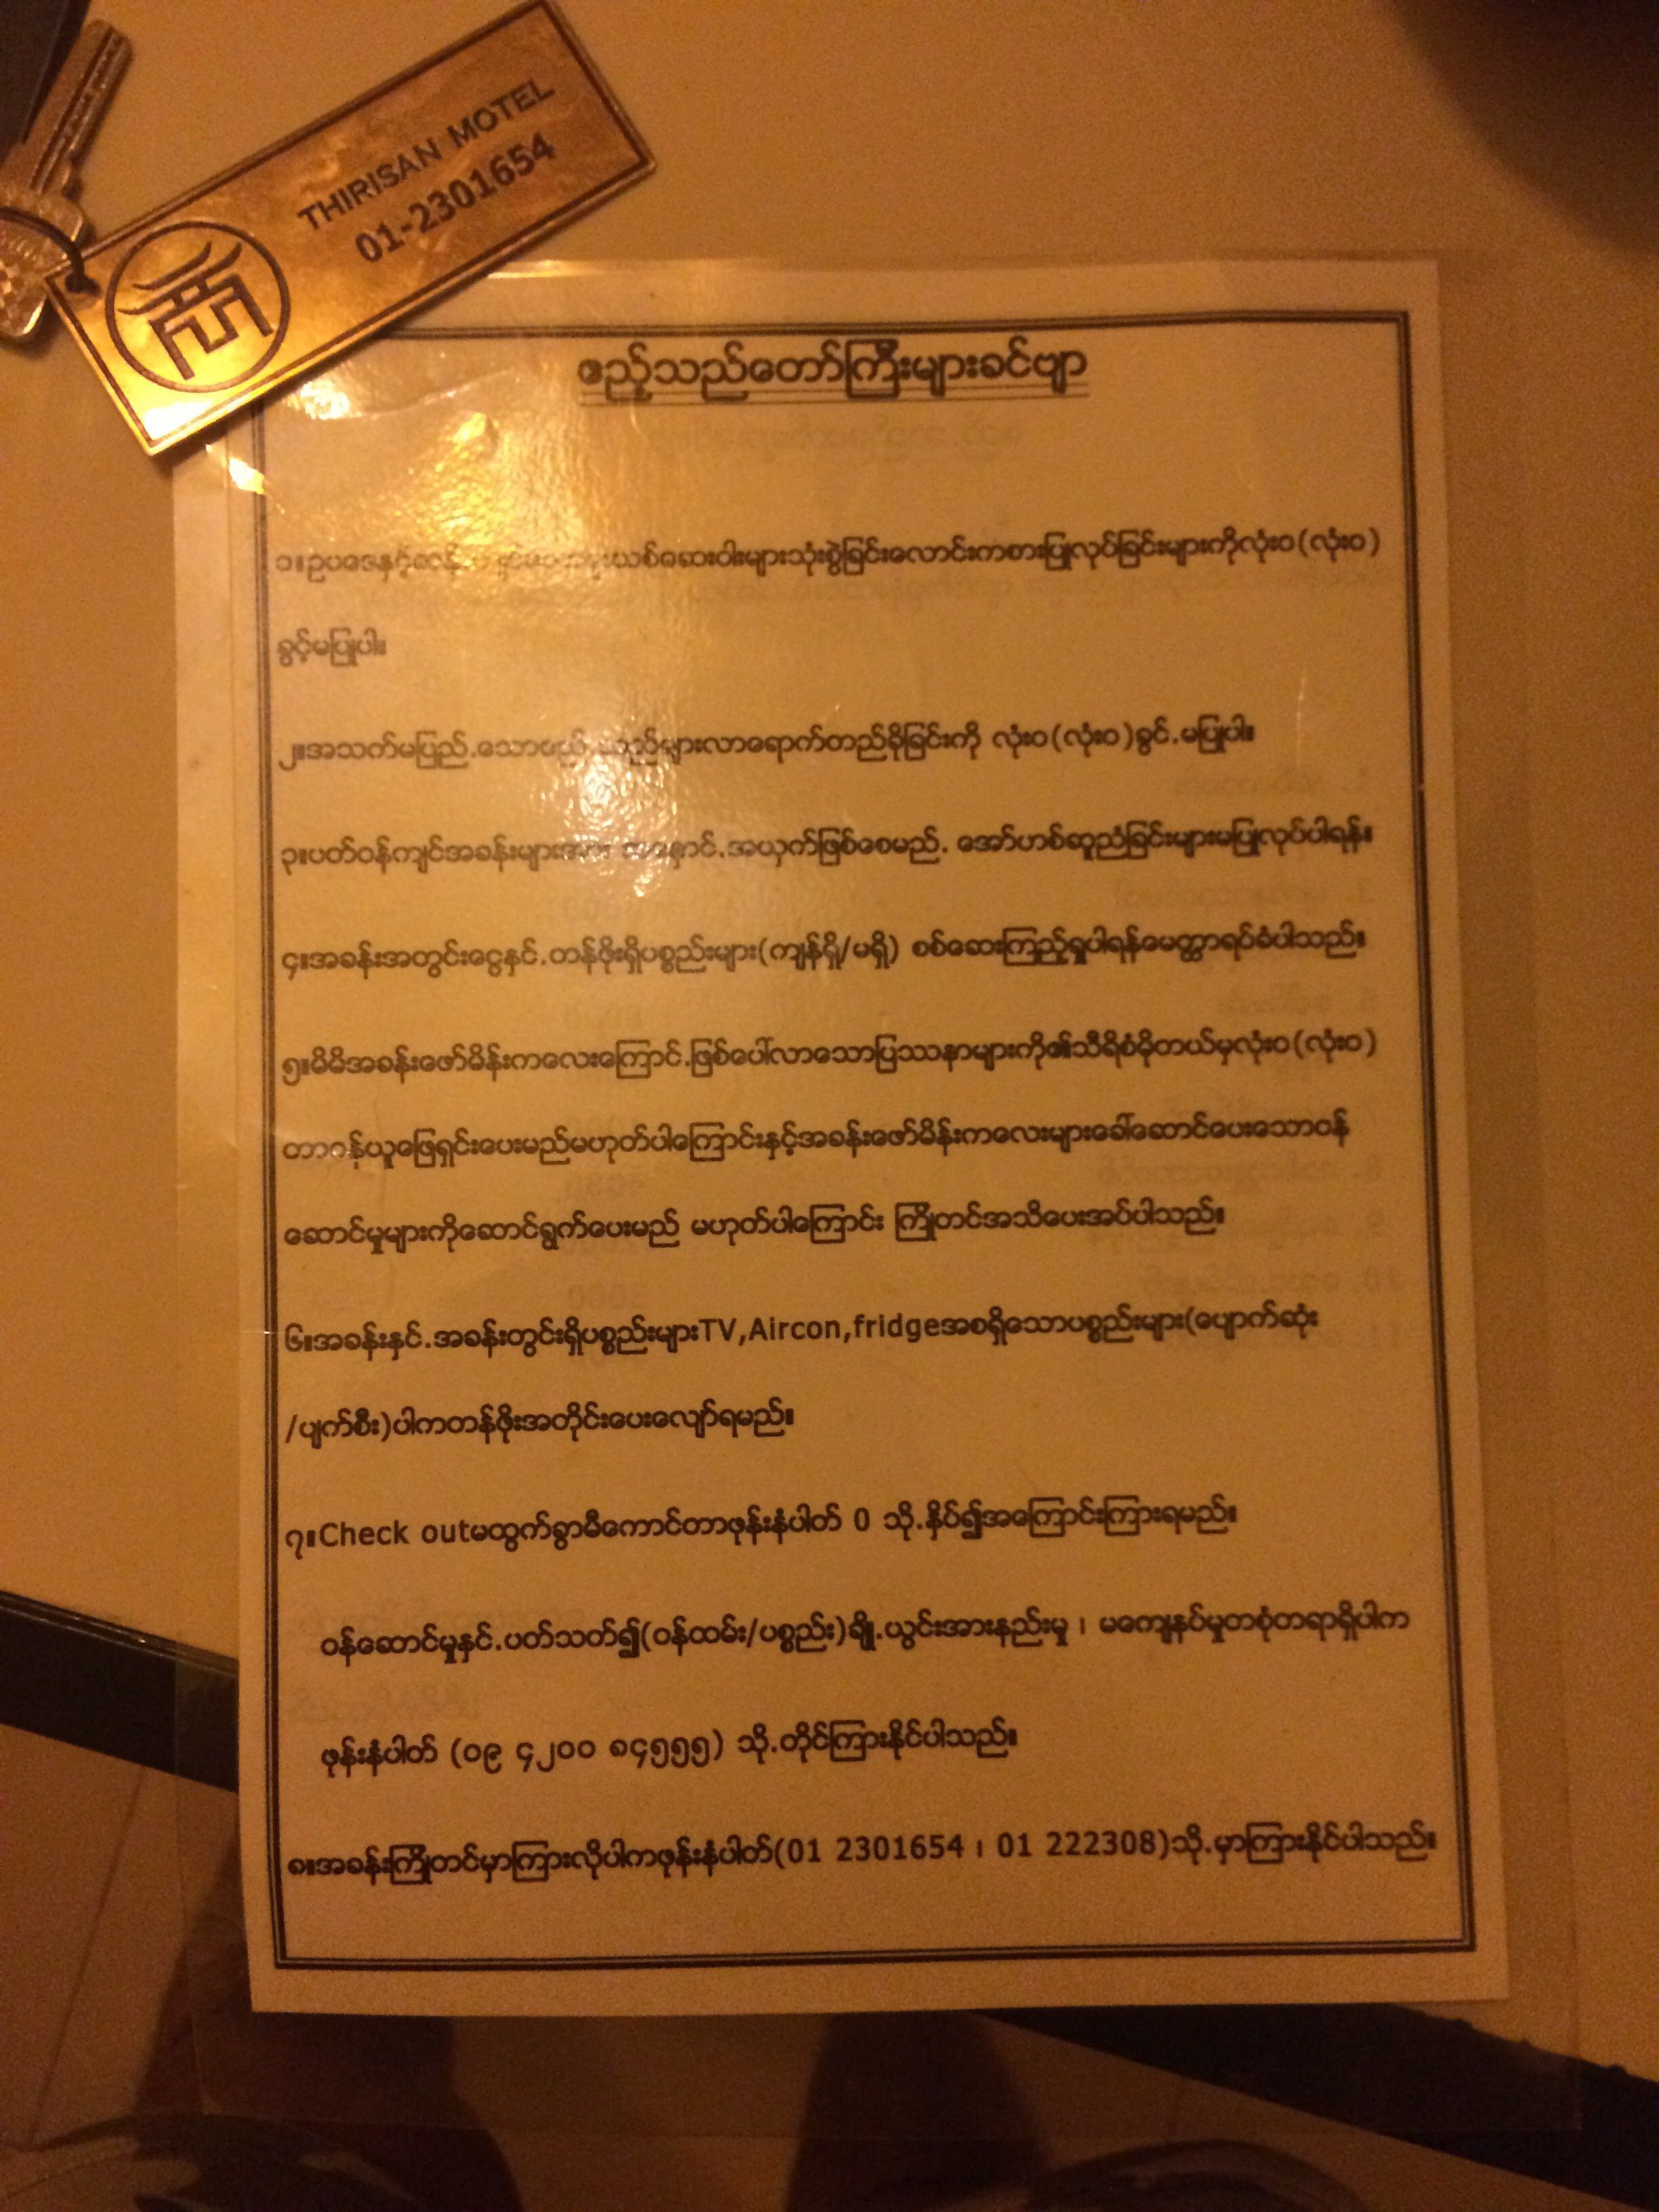 THIRISAN MOTEL
01-2301654
ဧည့်သည်တော်ကြီးများခင်ဗျာ
၁။ဥပဒေနှင့် ယစ်ဆေးဝါးများသုံးစွဲခြင်းလောင်းကစားပြုလုပ်ခြင်းများကိုလုံးဝ(လုံးဝ)
ခွင့်မပြုပါ။
၂။အသက်မပြည့်သောဧည့်သည်များလာရောက်တည်ခိုခြင်းကို လုံးဝ(လုံးဝ)ခွင့်မပြုပါ။
၃။ပတ်ဝန်ကျင်အခန်းများအား အနှောင့်အယှက်ဖြစ်စေမည့် အော်ဟစ်ဆူညံခြင်းများမပြုလုပ်ပါရန်။
၄။အခန်းအတွင်းငွေနှင့်တန်ဖိုးရှိပစ္စည်းများ(ကျန်ရှိ/မရှိ) စစ်ဆေးကြည့်ရှုပါရန်မေတ္တာရပ်ခံပါသည်။
၅။မိမိအခန်းဖော်မိန်းကလေးကြောင့်ဖြစ်ပေါ်လာသောပြဿနာများကို၏သီရိစံမိုတယ်မှလုံးဝ(လုံးဝ)
တာဝန်ယူဖြေရှင်းပေးမည်မဟုတ်ပါကြောင်းနှင့်အခန်းဖော်မိန်းကလေးများခေါ်ဆောင်ပေးသောဝန်
ဆောင်မှုများကိုဆောင်ရွက်ပေးမည် မဟုတ်ပါကြောင်း ကြိုတင်အသိပေးအပ်ပါသည်။
၆။အခန်းနှင့်အခန်းတွင်းရှိပစ္စည်းများTV,Aircon,fridgeအစရှိသောပစ္စည်းများ(ပျောက်ဆုံး
/ပျက်စီး)ပါကတန်ဖိုးအတိုင်းပေးလျော်ရမည်။
၇။Check outမထွက်ခွာမီကောင်တာဖုန်းနံပါတ် 0 သို့နှိပ်၍အကြောင်းကြားရမည်။
ဝန်ဆောင်မှုနှင့်ပတ်သတ်၍(ဝန်ထမ်း/ပစ္စည်း)ချို့ယွင်းအားနည်းမှု ၊ မကျေနပ်မှုတစုံတရာရှိပါက
ဖုန်းနံပါတ် (၀၉ ၄၂၀၀ ၈၄၅၅၅) သို့တိုင်ကြားနိုင်ပါသည်။
၈။အခန်းကြိုတင်မှာကြားလိုပါကဖုန်းနံပါတ်(01 2301654 ၊ 01 222308)သို့မှာကြားနိုင်ပါသည်။